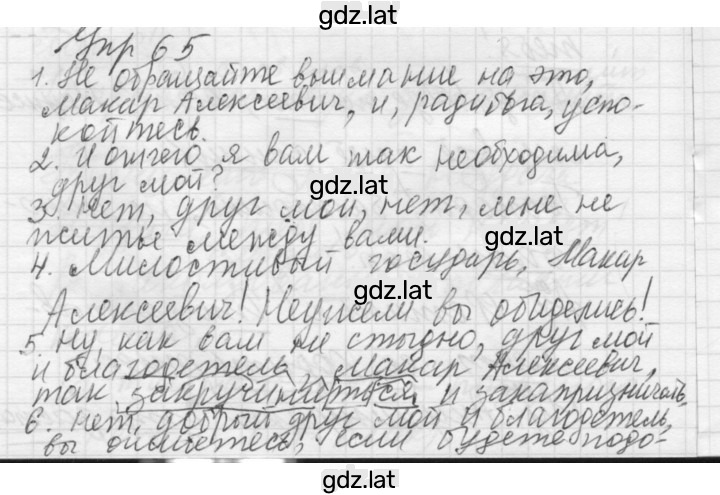 gdz.lat
Упр 65
1. Не обращайте внимание на это,
Макар Алексеевич, и, радибога, успо-
койтесь.
2. И отчего я вам так необходима,
друг мой?
gdz.lat
3. Нет, друг мой, нет, мне не
житьё между вами.
gdz.lat
4. Милостивый государь, Макар
gdz.lat
Алексеевич! Неужели вы обиделись!
5. Ну как вам не стыдно, друг мой
и благодетель, Макар Алексеевич,
так закручиниться и закапризничать.
gdz.lat
6. Нет, добрый друг мой и благодетель,
вы ошибетесь, если будете подо-
gdz.lat